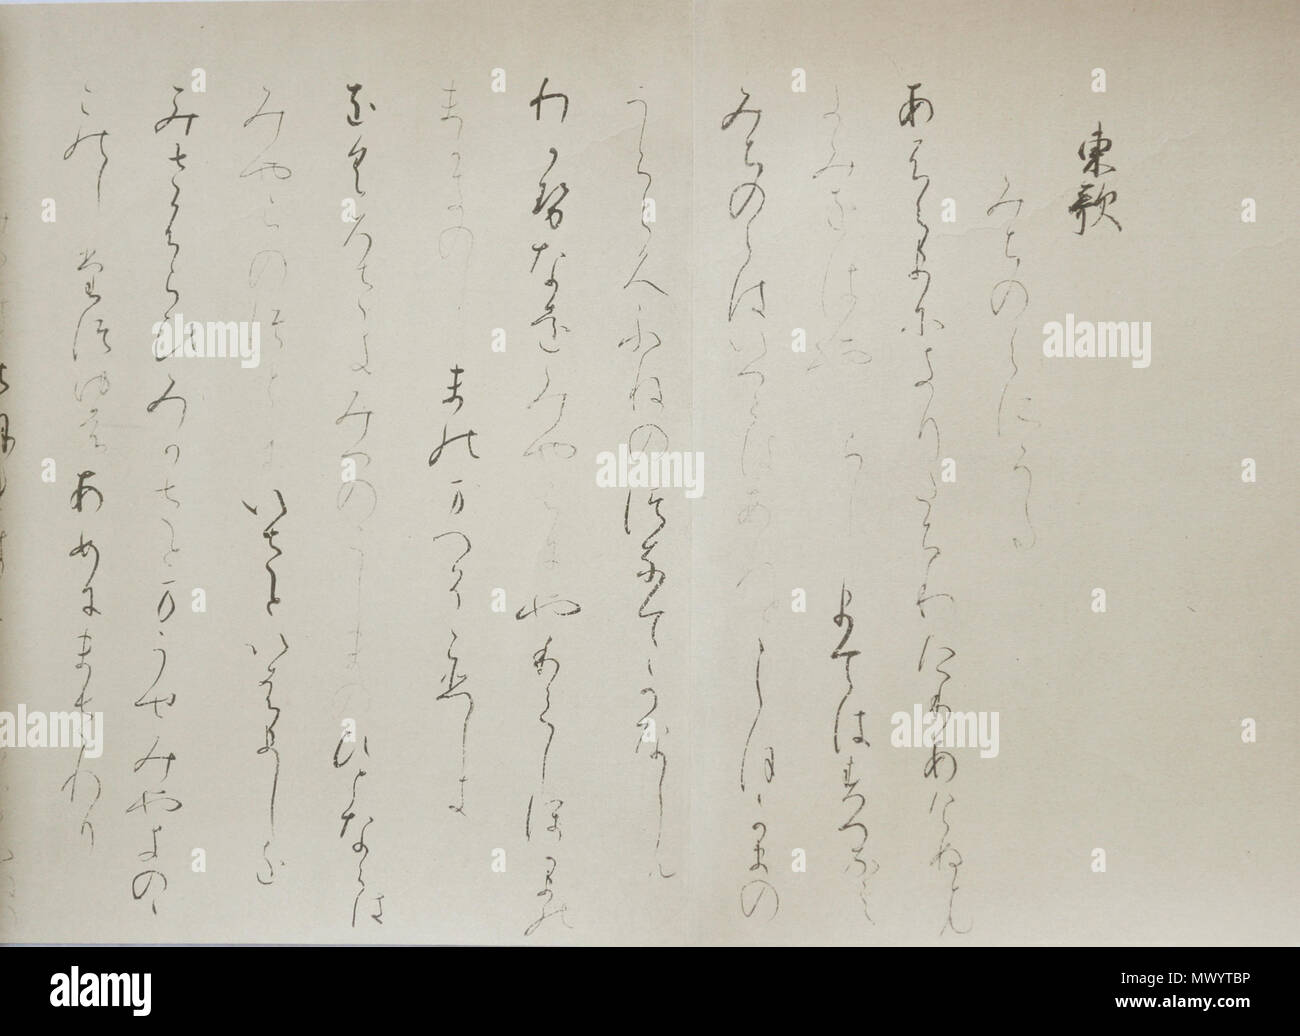 東歌
みちのくにうた
あふくまにきりたちわたりあけぬとも
きみをはやらし まてはすへなみ
みちのくはいつくはあれとしほかまの
うらこくふねのつなてかなしも
わかせなをみやこにやりてしほかまの
まかきのしまのまつそ恋しき
をくろさきみつのこしまのひとならは
みやこのつとにいさといはましを
みさふらひみかさとまうせみやきのゝ
このしたつゆはあめにまされり
alamy
Image ID: MWYTBP
www.alamy.com